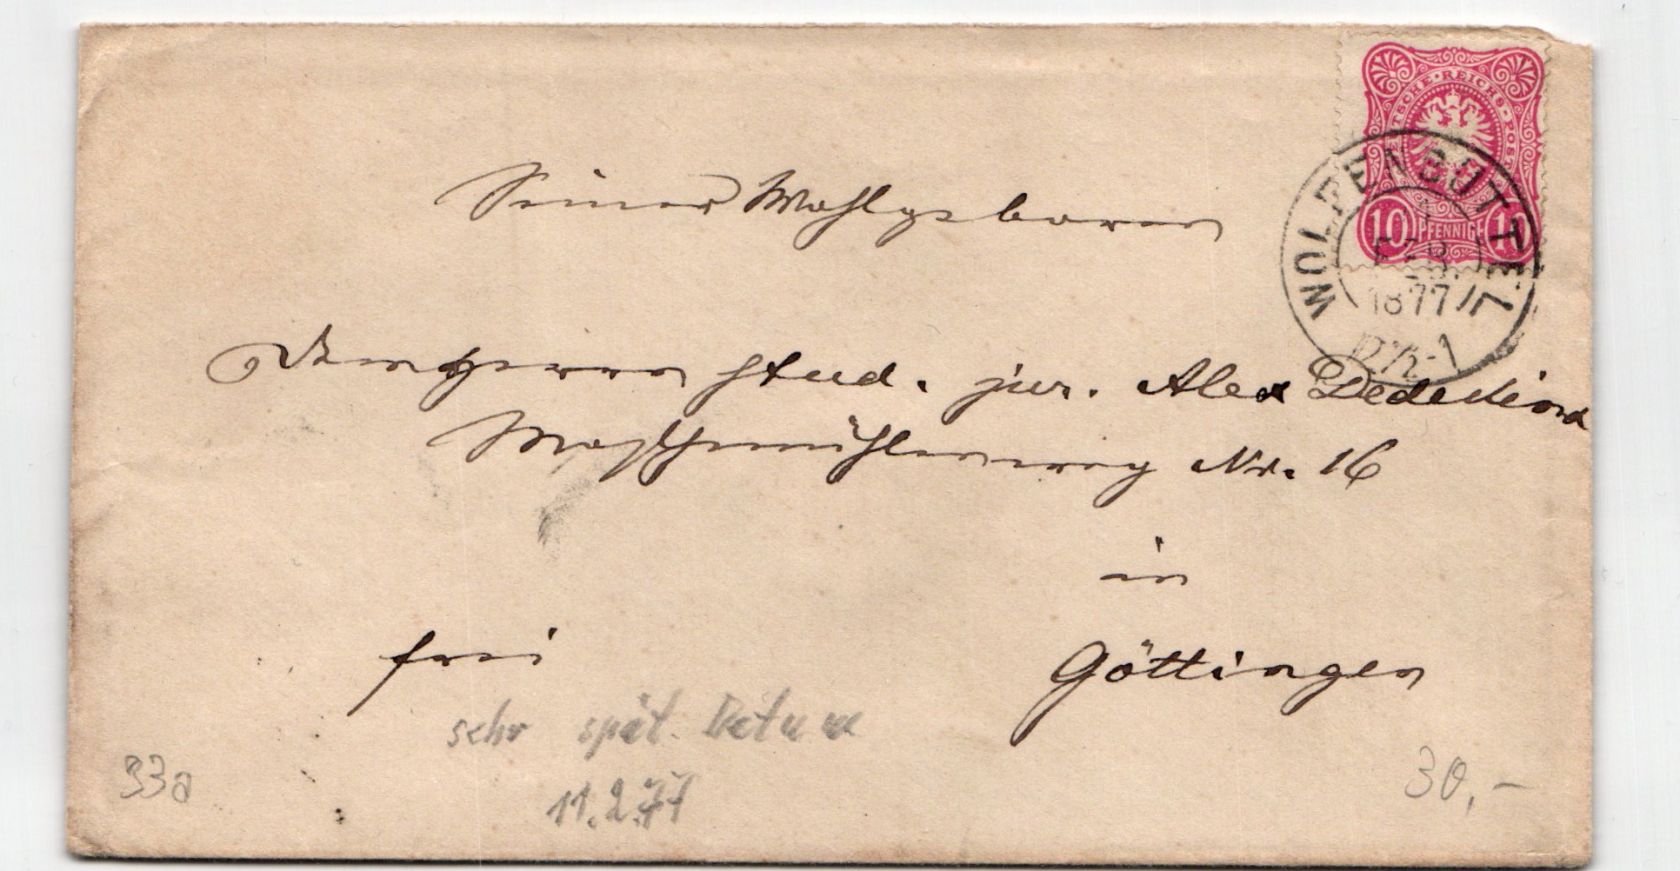 DEUTSCHE · REICHS-POST
10 PFENNIGE 10
WOLFENBÜTTEL
11
FEB.
1877
12½-1
Seiner Wohlgeboren
stud. jur. Alex Dedekind
Maschmühlenweg Nr. 16
in
Göttingen
frei
sehr spät. Datum
11.2.77
33a
30,-